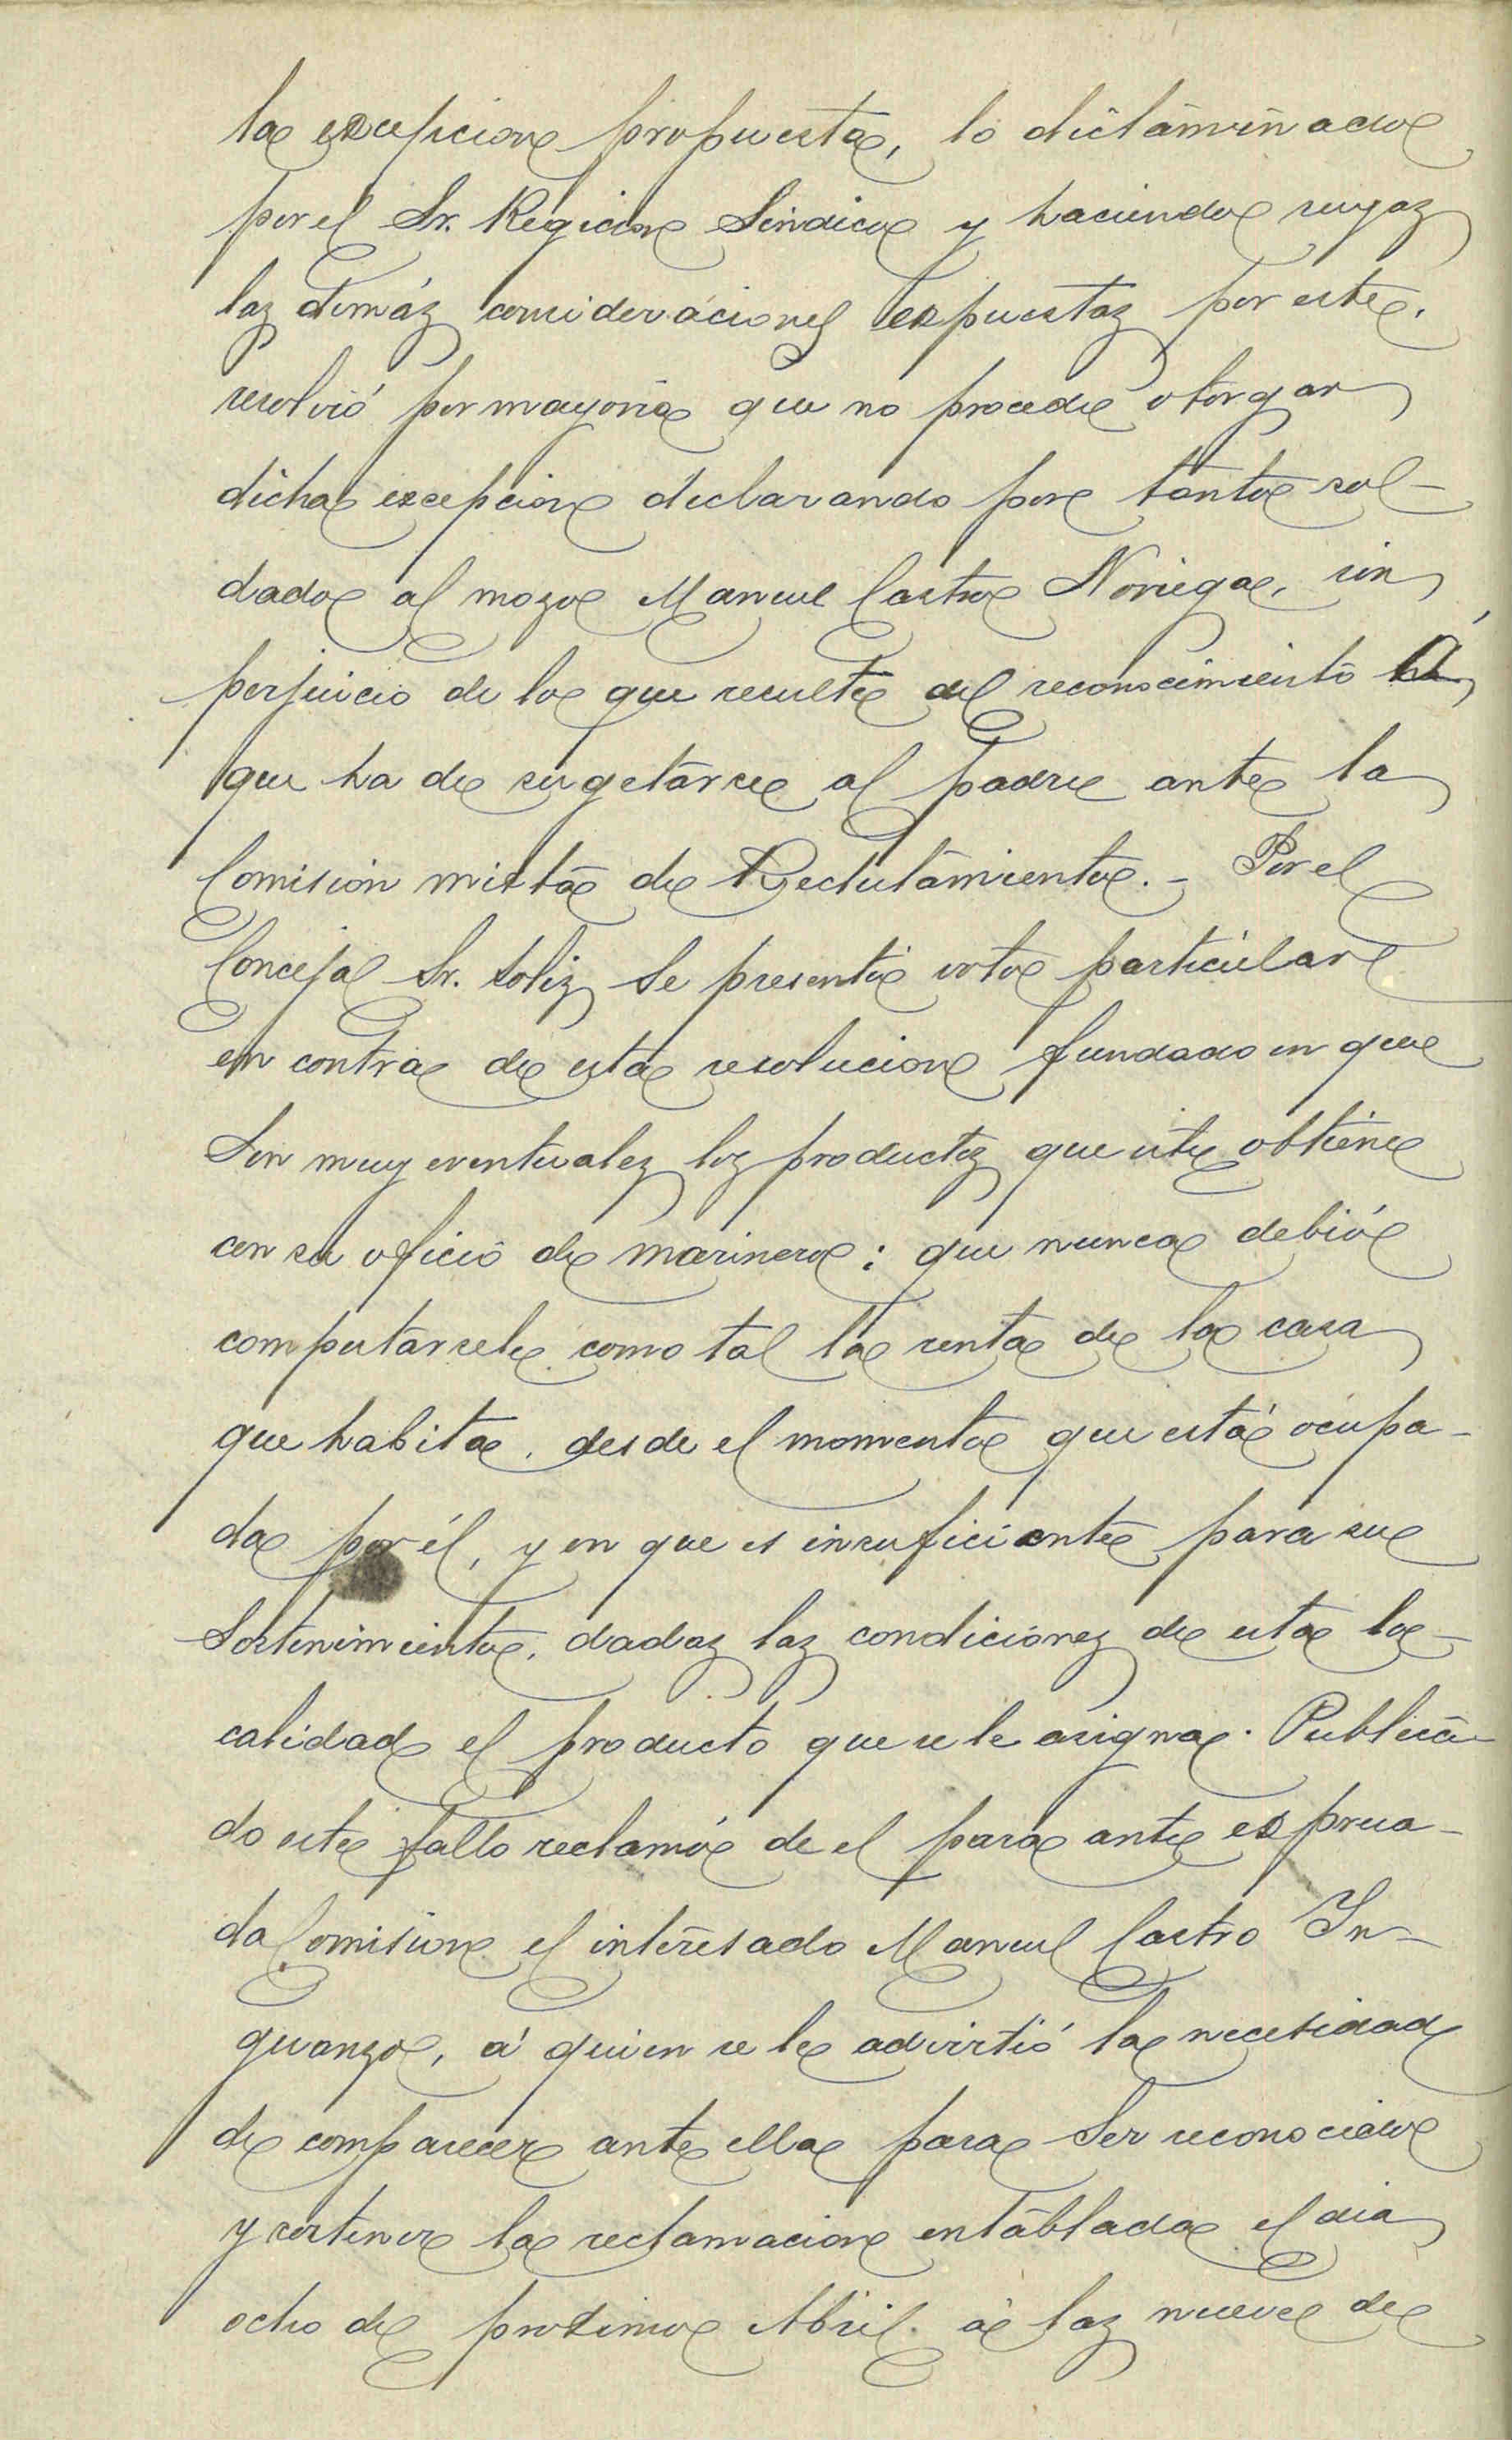 la excepcion propuesta, lo dictaminado
por el Sr. Regidor Sindico y haciendo suyaz
laz demáz consideraciones expuestaz por este,
resolvió por mayoria que no procede otorgar
dicha excepcion declarando por tanto sol-
dado al mozo Manuel Castro Noriega, sin
perjuicio de lo que resulte del reconocimiento á
que ha de sugetarse al padre ante la
Comision mixta de Reclutamiento.- Por el
Concejal Sr. Soliz se presentó voto particular
en contra de esta resolucion fundado en que
Son muy eventualez loz productoz que este obtiene
con su oficio de marinero: que nunca debió
computarsele como tal la renta de la casa
que habita, desde el momento que está ocupa-
da por él, y en que es insuficiente para su
Sostenimiento, dadaz laz condicionez de esta lo-
calidad el producto que se le asigna. Publica-
do este fallo reclamó de el para ante expresa-
da Comision el interesado Manuel Castro In-
guanzo, á quien se le advirtió la necesidad
de comparecer ante ella para Ser reconocido
y sostener la reclamacion entablada el dia
ocho de proximo Abril á laz nueve de